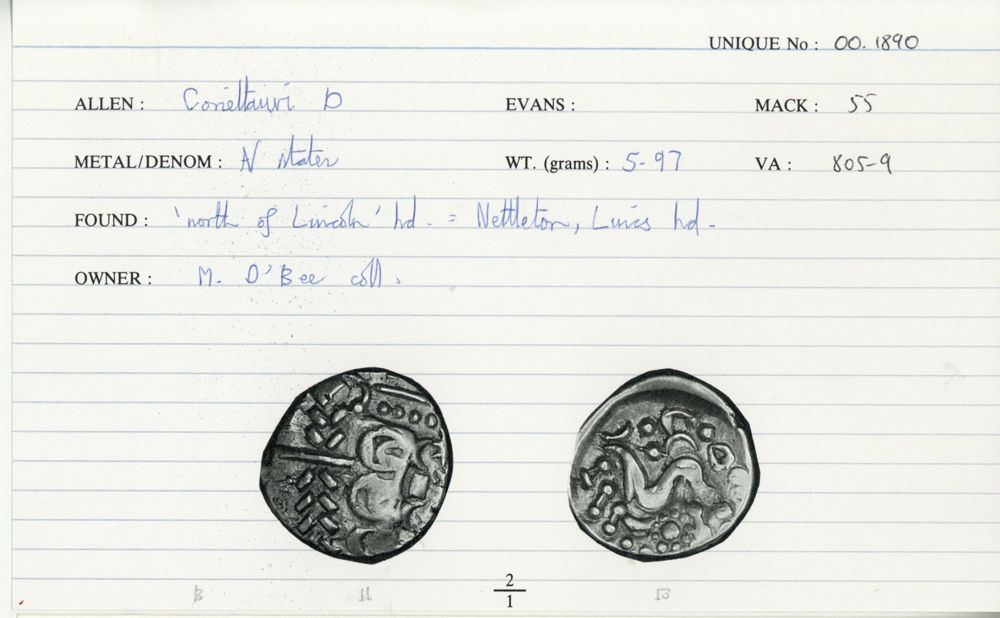 UNIQUE No : 00.1890
ALLEN : Corieltauvi D EVANS : MACK : 55
METAL/DENOM : N stater WT. (grams) : 5-97 VA : 805-9
FOUND : 'north of Lincoln' hd. = Nettleton, Lincs hd.
OWNER : M. O'Bee coll.
2
1